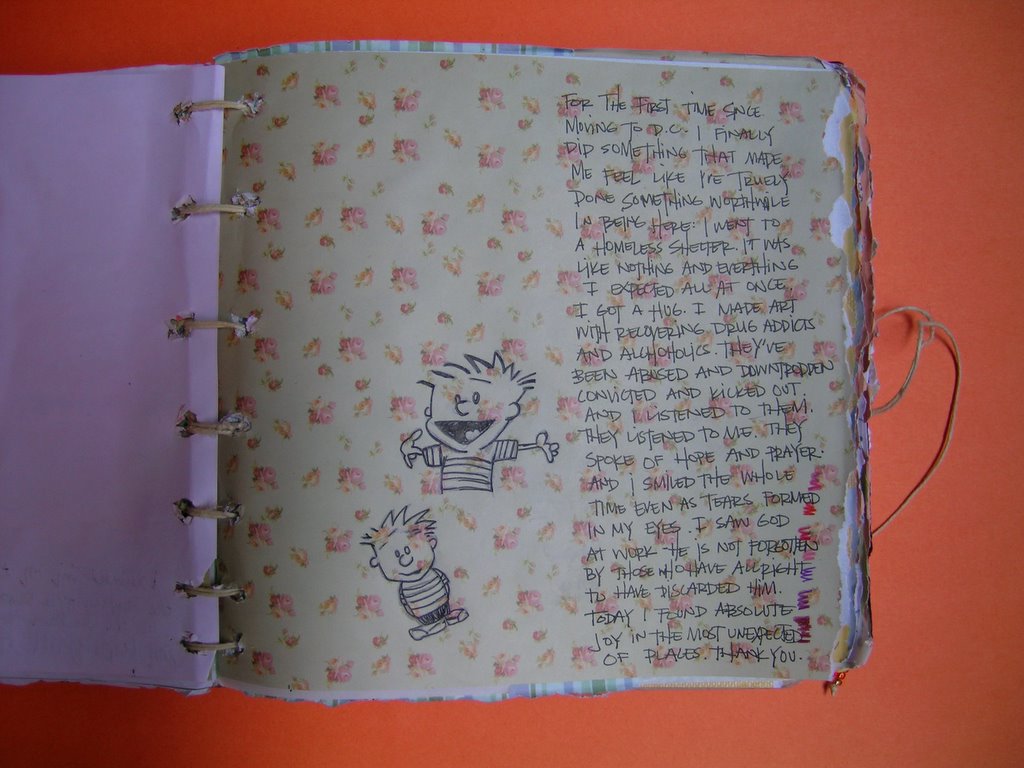 FOR THE FIRST TIME SNCE
MOVING TO D.C. I FINALLY
DID SOMETHING THAT MADE
ME FEEL LIKE I'VE TRUELY
DONE SOMETHING WORTHWILE
IN BEING HERE: I WENT TO
A HOMELESS SHELTER. IT WAS
LIKE NOTHING AND EVERTHING
I EXPECTED ALL AT ONCE.
I GOT A HUG. I MADE ART
WITH RECOVERING DRUG ADDICTS
AND ALCHOHOLICS. THEY'VE
BEEN ABUSED AND DOWNTRODDEN
CONVICTED AND KICKED OUT.
AND I LISTENED TO THEM.
THEY LISTENED TO ME. THEY
SPOKE OF HOPE AND PRAYER.
AND I SMILED THE WHOLE
TIME EVEN AS TEARS FORMED
IN MY EYES. I SAW GOD
AT WORK. HE IS NOT FORGOTTEN
BY THOSE WHO HAVE ALL RIGHT
TO HAVE DISCARDED HIM.
TODAY I FOUND ABSOLUTE
JOY IN THE MOST UNEXPECTED
OF PLACES. THANK YOU.